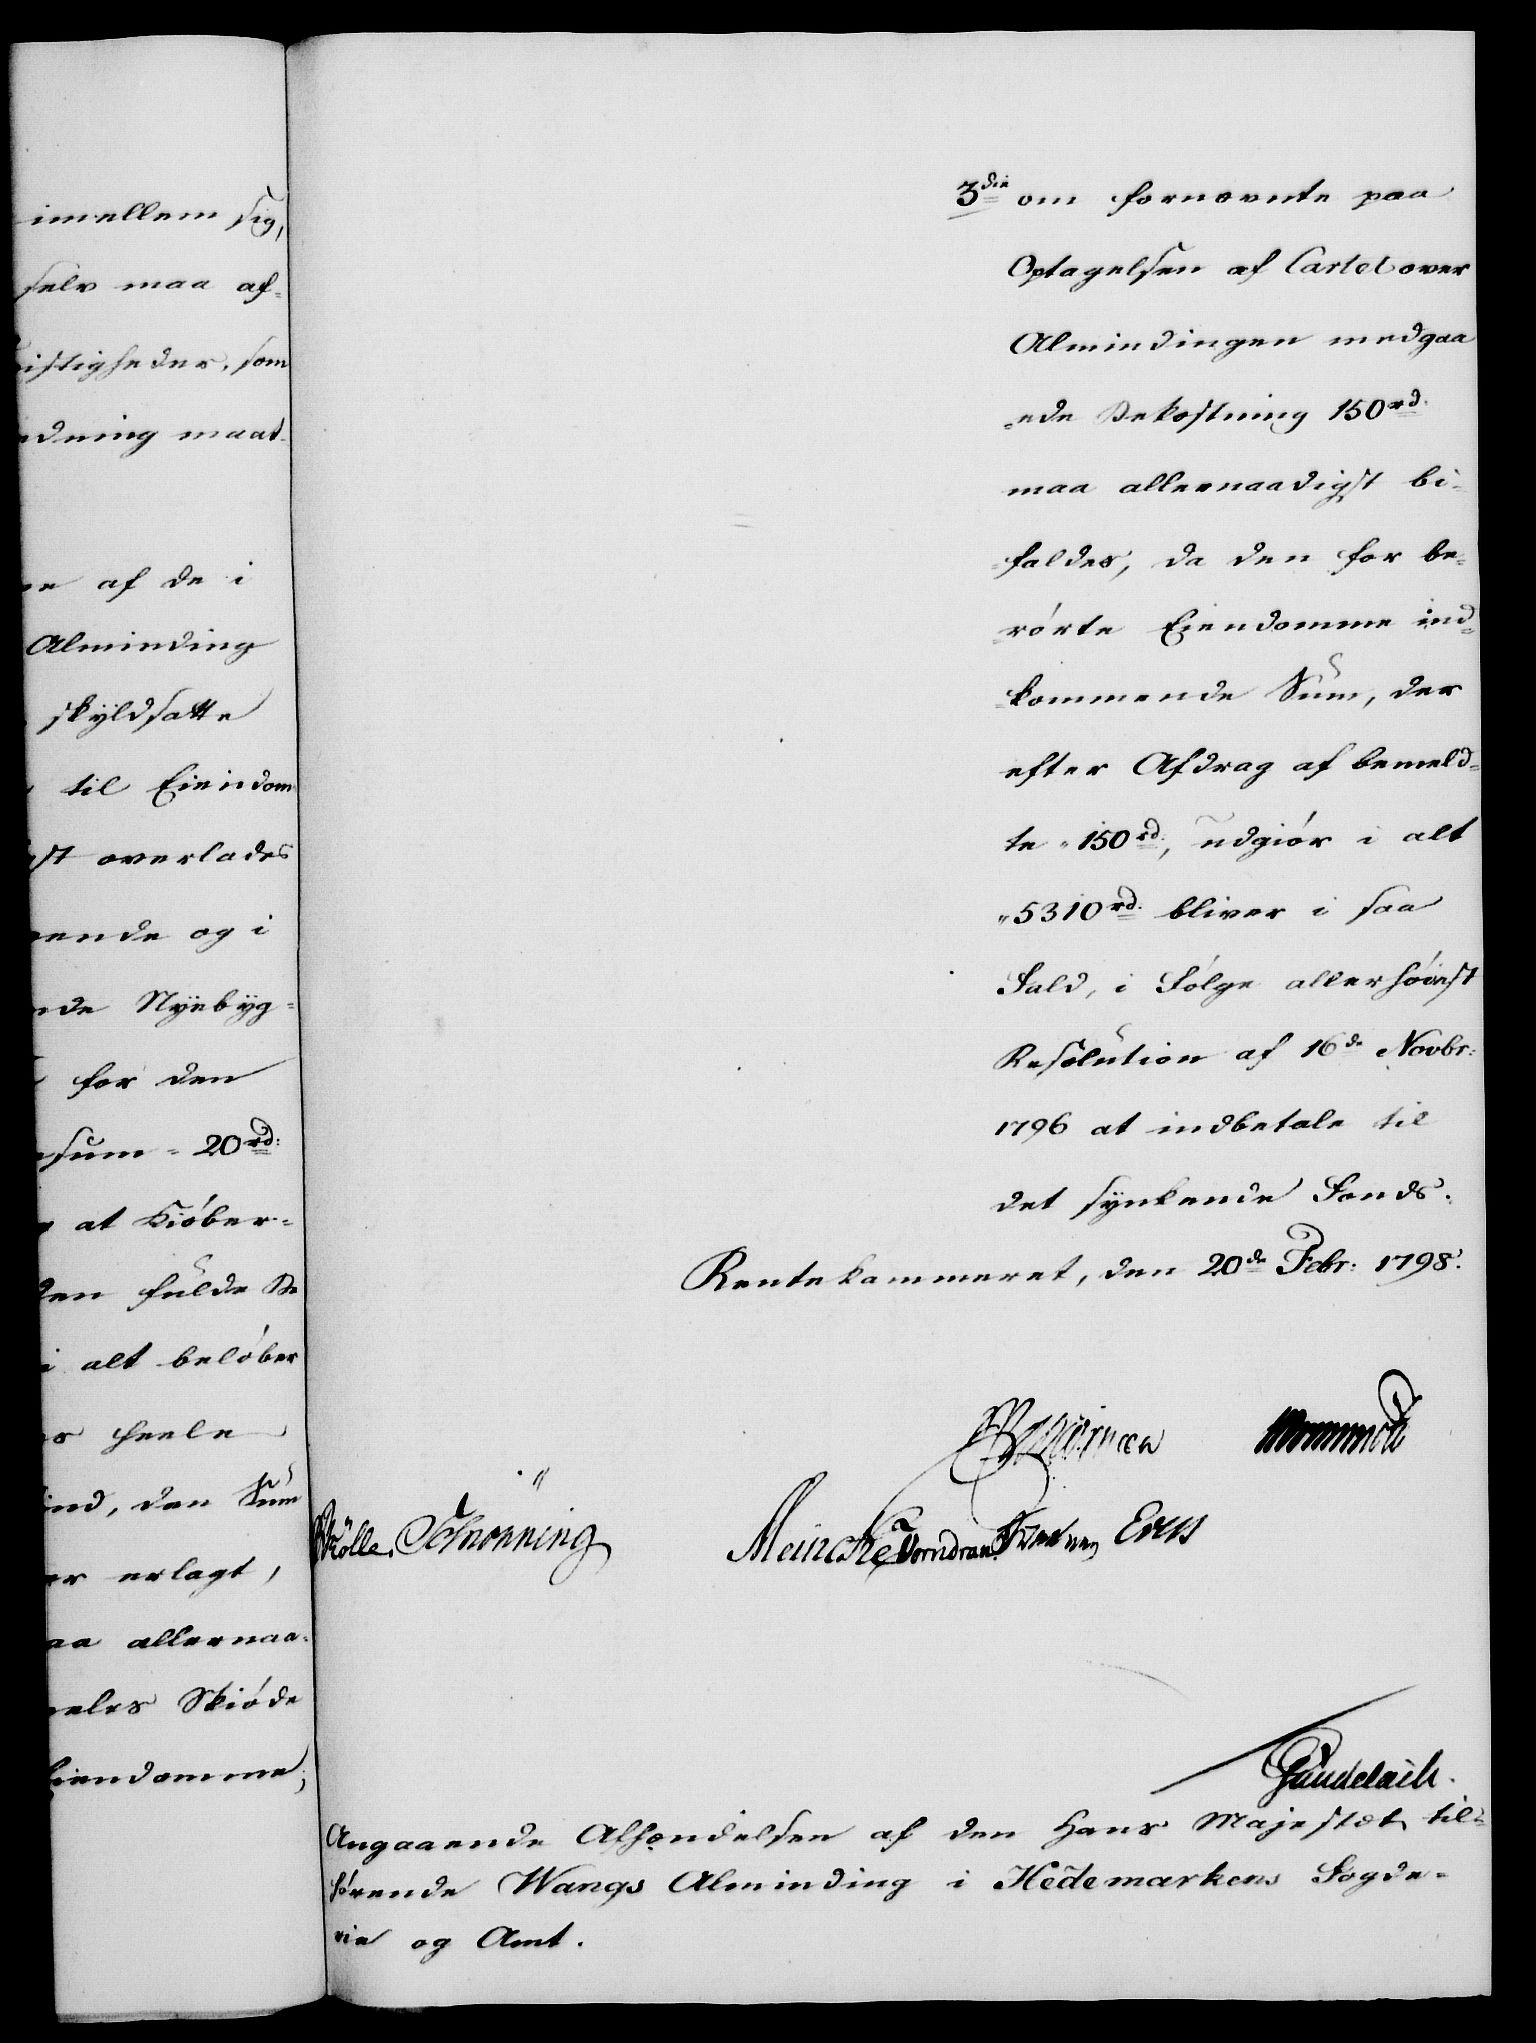 imellem sig,
selv maa af-
istigheder, som
dning maat-
af de i
Alminding
skyldsatte
til Eiendom
st overlades
ende og i
nde Nÿebÿg-
for den
sum - 20 rd:
at Kiöber-
den fulde Be
i alt belöber
heele
ind, den Sum
er erlagt,
aa allernaa-
eles Skiöde
Eiendomme;
3die om fornævnte paa
Optagelsen af Cartet over
Almindingen medgaa
ede Bekostning 150 rd.
maa allernaadigst bi-
faldes, da den for be-
rörte Eiendomme ind-
kommende Sum, der
efter Afdrag af bemeld-
te 150 rd., udgiör i alt
5310 rd. bliver i saa
Fald, i Fölge allerhöiest
Resolution af 16de Novbr:
1796 at indbetale til
det synkende Fonds.
Rentekammeret, den 20de Febr: 1798.
Schönning
Meincke Vorndran
Gundelach.
Angaaende Afhændelsen af den Hans Majestæt til-
hörende Wangs Alminding i Hedemarkens Fogde-
rie og Amt.